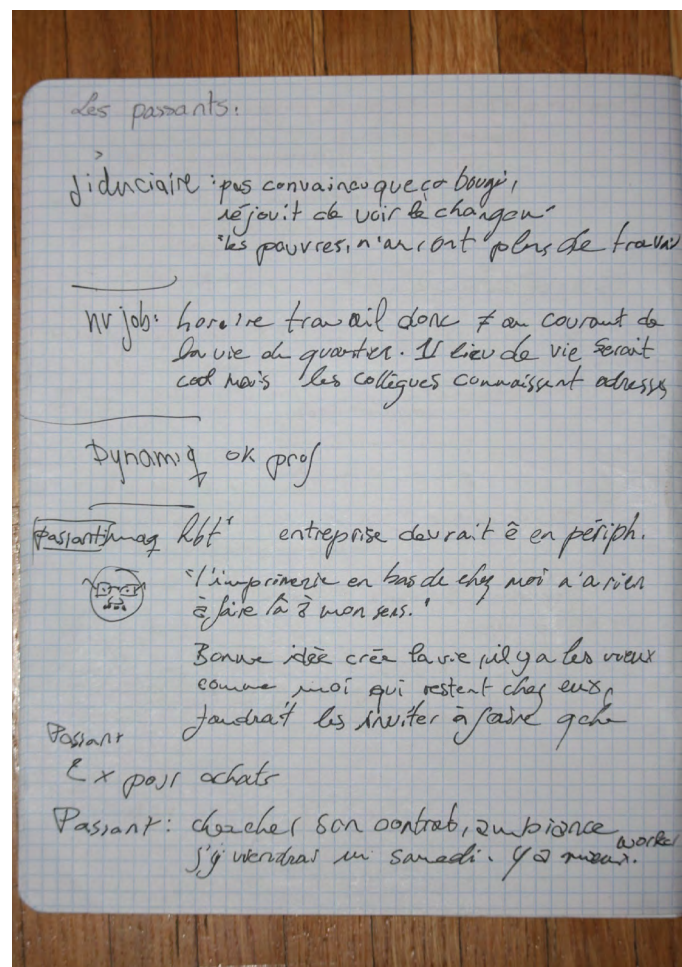 Les passants.
fiduciaire : pas convaincu que ça bouge,
réjouit de voir le changem^t
"les pauvres, n'auront plus de travail
nv job: horaire travail donc ≠ au courant de
la vie du quartier. 1 lieu de vie serait
cool mais les collègues connaissent adresses
Dynamiq ok prof
passant hbt^t entreprise devrait ê en périph.
"l'imprimerie en bas de chez moi n'a rien
à faire là à mon sens."
Bonne idée crée la vie, il y a les vieux
comme moi qui restent chez eux,
faudrait les inviter à faire qche
Passant
2 x pour achats
Passant: chercher son contrat, ambiance worker
j'y viendrai un samedi. Y a mieux.